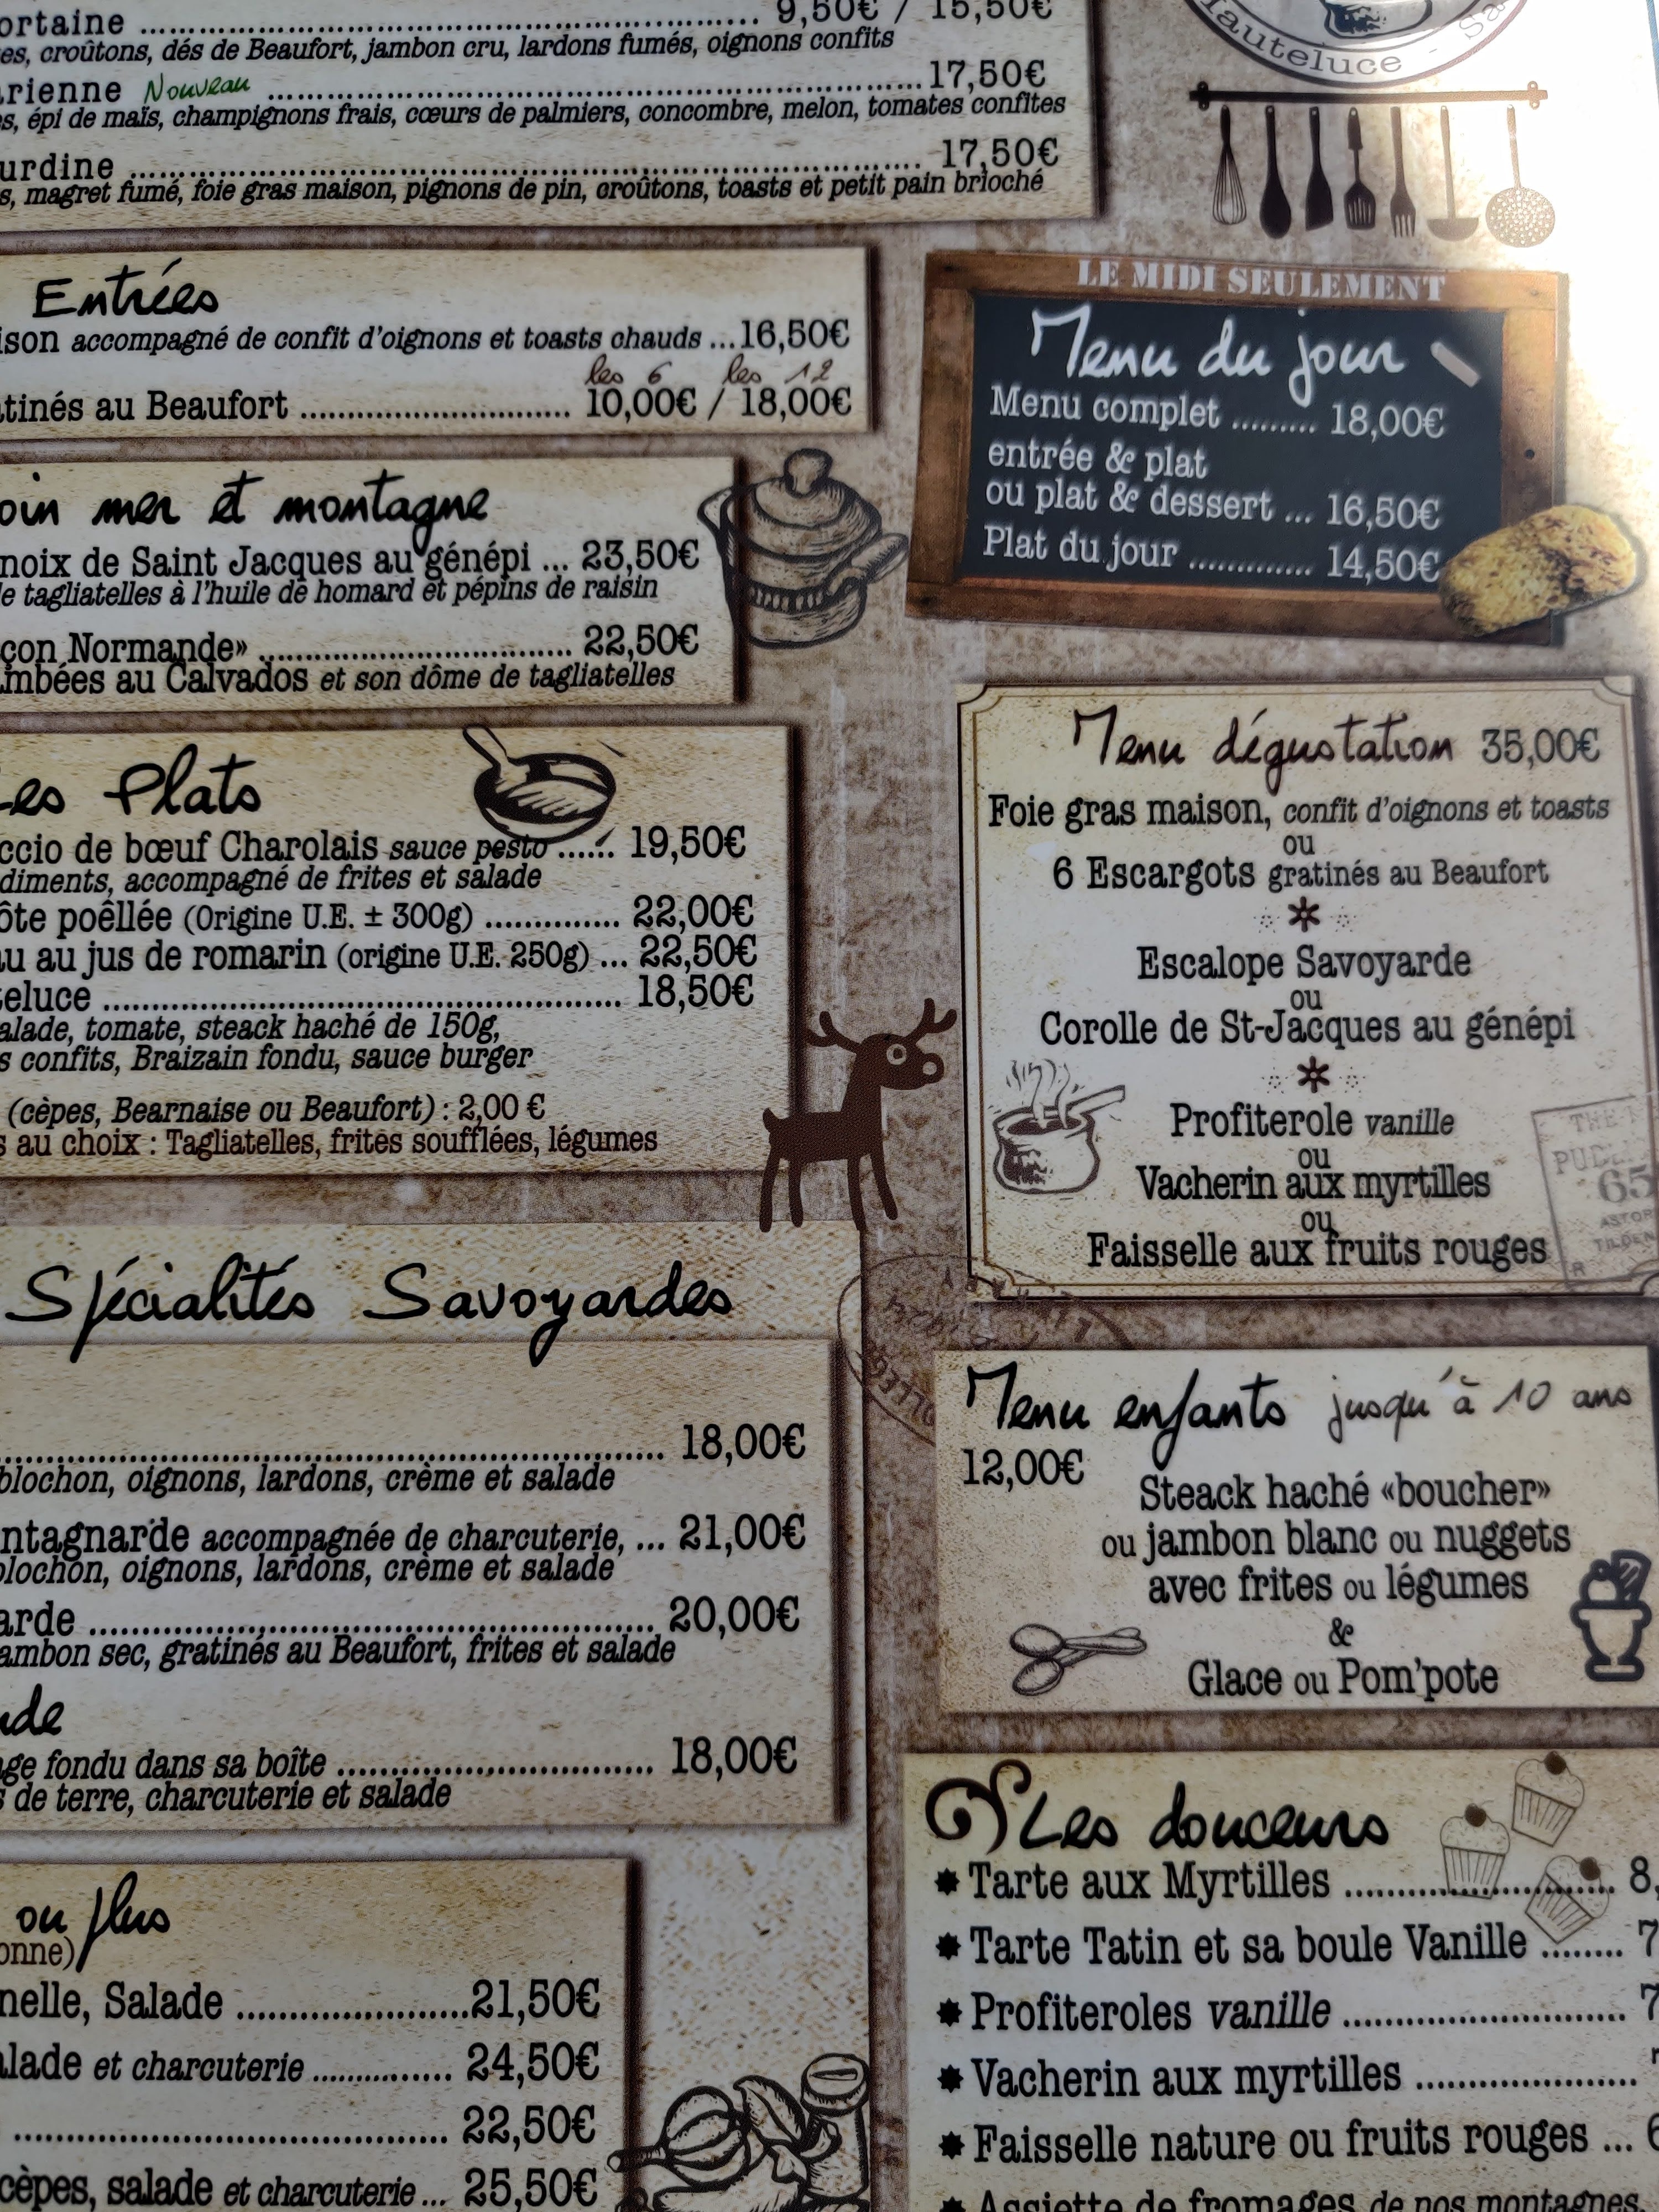 ortaine ... 9,50€ / 15,50€
es, croûtons, dés de Beaufort, jambon cru, lardons fumés, oignons confits
rienne Nouveau ... 17,50€
s, épi de maïs, champignons frais, cœurs de palmiers, concombre, melon, tomates confites
urdine ... 17,50€
s, magret fumé, foie gras maison, pignons de pin, croûtons, toasts et petit pain brioché
Entrées
ison accompagné de confit d'oignons et toasts chauds ...16,50€
les 6 les 12
tinés au Beaufort ... 10,00€ / 18,00€
oin mer et montagne
noix de Saint Jacques au génépi ... 23,50€
e tagliatelles à l'huile de homard et pépins de raisin
çon Normande» ... 22,50€
mbées au Calvados et son dôme de tagliatelles
Les Plats
ccio de bœuf Charolais sauce pesto ...... 19,50€
diments, accompagné de frites et salade
ôte poêllée (Origine U.E. ± 300g) ... 22,00€
au au jus de romarin (origine U.E. 250g) ... 22,50€
eluce ... 18,50€
alade, tomate, steack haché de 150g,
s confits, Braizain fondu, sauce burger
(cèpes, Bearnaise ou Beaufort) : 2,00 €
s au choix : Tagliatelles, frites soufflées, légumes
Spécialités Savoyardes
... 18,00€
blochon, oignons, lardons, crème et salade
ntagnarde accompagnée de charcuterie, ... 21,00€
blochon, oignons, lardons, crème et salade
arde ... 20,00€
ambon sec, gratinés au Beaufort, frites et salade
de
age fondu dans sa boîte ... 18,00€
s de terre, charcuterie et salade
ou plus
onne)
nelle, Salade ... 21,50€
alade et charcuterie ... 24,50€
... 22,50€
cèpes, salade et charcuterie ... 25,50€
Hauteluce - Sa
LE MIDI SEULEMENT
Menu du jour
Menu complet ......... 18,00€
entrée & plat
ou plat & dessert ... 16,50€
Plat du jour ............. 14,50€
Menu dégustation 35,00€
Foie gras maison, confit d'oignons et toasts
ou
6 Escargots gratinés au Beaufort
Escalope Savoyarde
ou
Corolle de St-Jacques au génépi
Profiterole vanille
ou
Vacherin aux myrtilles
ou
Faisselle aux fruits rouges
65
Menu enfants jusqu'à 10 ans
12,00€
Steack haché «boucher»
ou jambon blanc ou nuggets
avec frites ou légumes
&
Glace ou Pom'pote
Les douceurs
Tarte aux Myrtilles ... 8,
Tarte Tatin et sa boule Vanille ........ 7
Profiteroles vanille ... 7
Vacherin aux myrtilles ...
Faisselle nature ou fruits rouges ... 6
Assiette de fromages de nos montagnes,